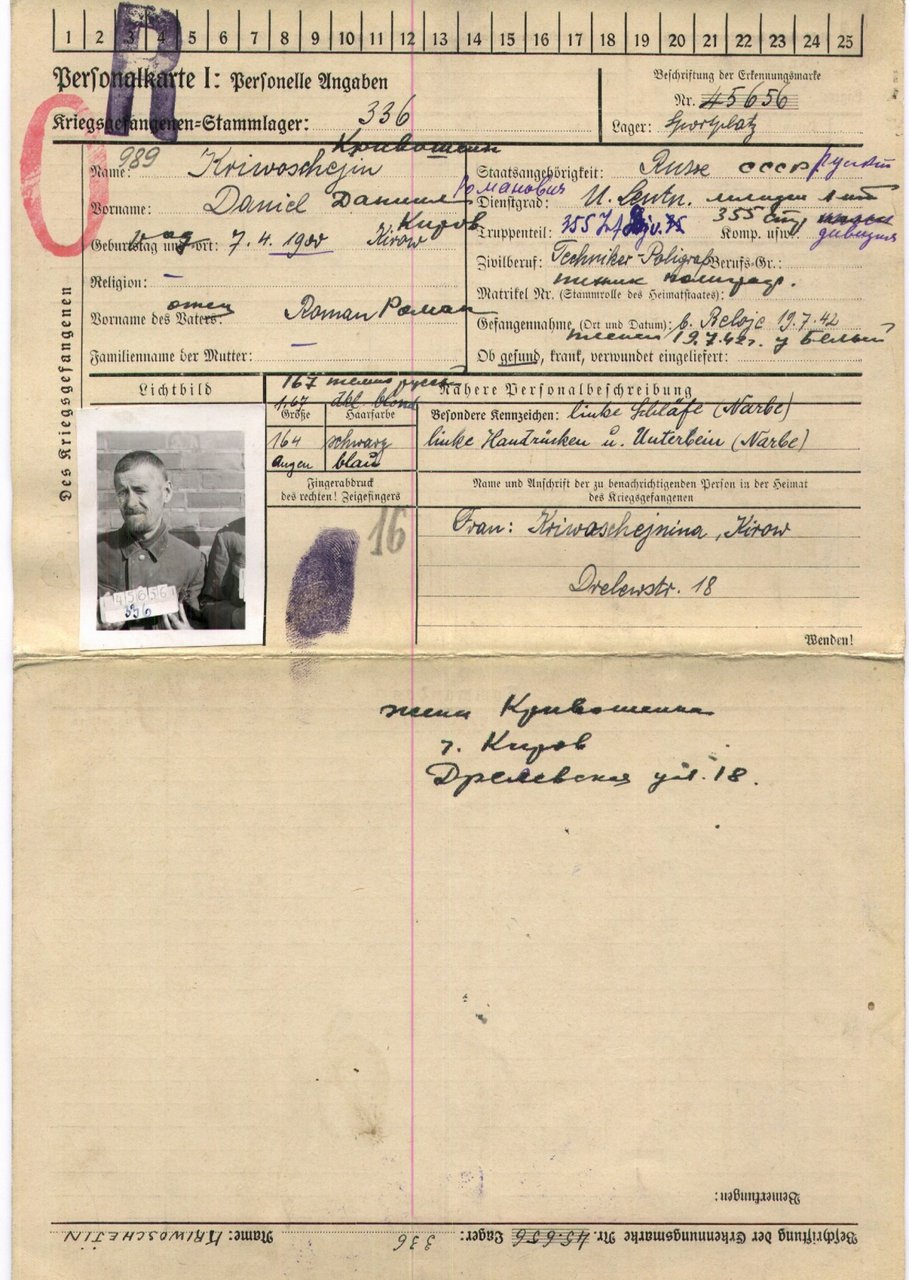 1 2 3 4 5 6 7 8 9 10 11 12 13 14 15 16 17 18 19 20 21 22 23 24 25
R
Personalkarte I: Personelle Angaben
Kriegsgefangenen-Stammlager: 336
Beschriftung der Erkennungsmarke
Nr. 45656
Lager: Sportplatz
Des Kriegsgefangenen
989
Кривошеин
Name: Kriwoschejin
Vorname: Daniel Даниил Романович
Киров
Geburtstag und -ort: 7.4.1900 Kirow
Religion: –
отец
Vorname des Vaters: Roman Роман
Familienname der Mutter: –
Staatsangehörigkeit: Russe СССР русский
Dienstgrad: U. Leutn.
Truppenteil: 355 355 Komp. usw.: дивизия
Zivilberuf: Techniker-Poligraf Berufs-Gr.:
техник полиграф.
Matrikel Nr. (Stammrolle des Heimatstaates):
Gefangennahme (Ort und Datum): b. Beloje 19.7.42
пленен 19.7.42г. у Белый
Ob gesund, krank, verwundet eingeliefert:
Lichtbild
167 темно русый
1,67 dkl. blond
Größe Haarfarbe
164 schwarz
Augen blau
Fingerabdruck
des rechten! Zeigefingers
16
Nähere Personalbeschreibung
Besondere Kennzeichen: linke Schläfe (Narbe)
linke Handrücken u. Unterbein (Narbe)
Name und Anschrift der zu benachrichtigenden Person in der Heimat
des Kriegsgefangenen
Frau: Kriwoschejnina, Kirow
Drelewstr. 18
Wenden!
45656
336
жена Кривошеина
г. Киров
Дрелевская ул. 18.
Bemerkungen:
Beschriftung der Erkennungsmarke Nr. 45656 Lager: 336 Name: KRIWOSCHEJIN